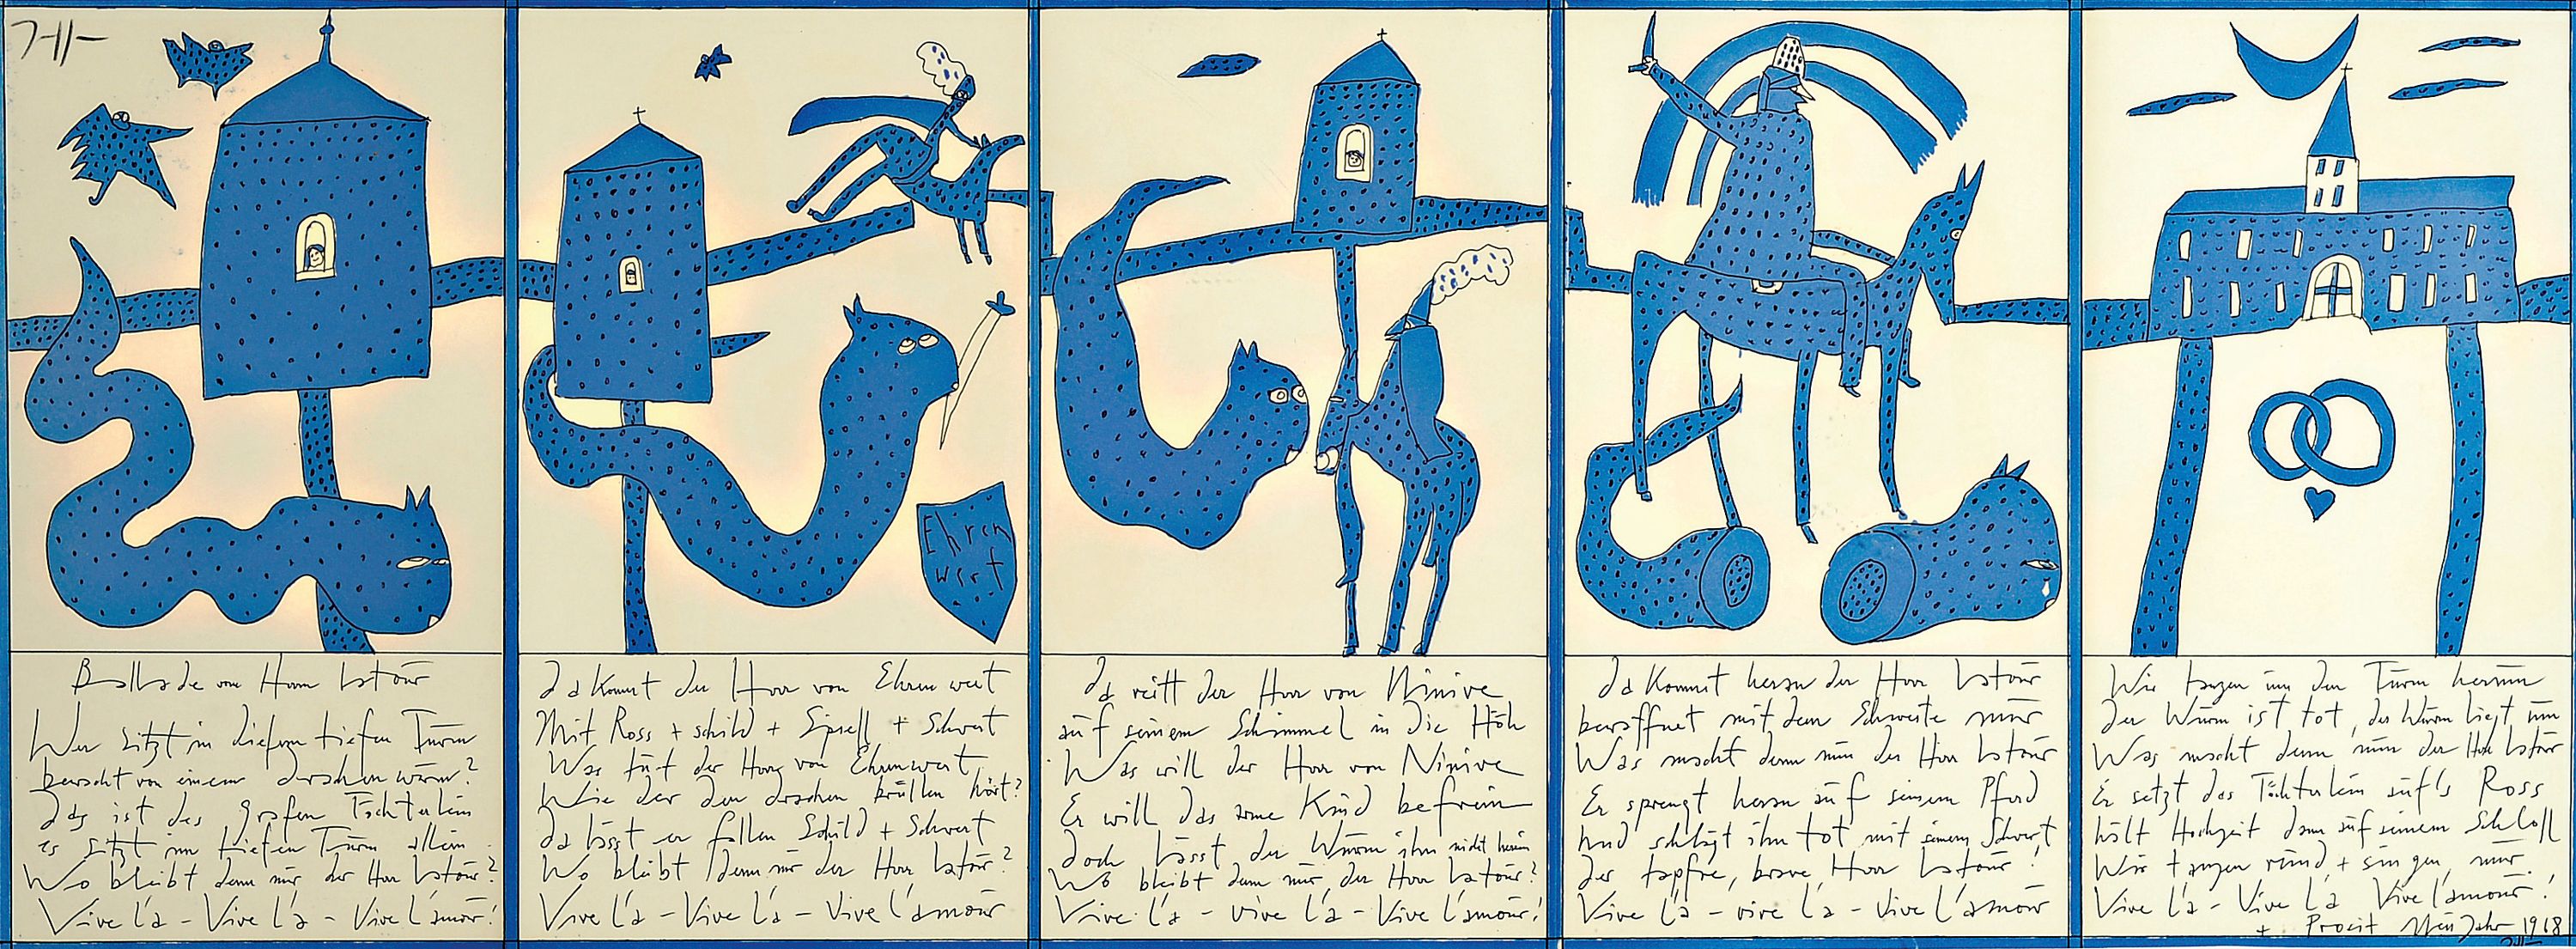 Ballade vom Herrn Latour
Wer sitzt in diesem tiefen Turm
bewacht von einem drachenwurm?
das ist des grafen Töchterlein
es sitzt im tiefen Turm allein
Wo bleibt denn nur der Herr Latour?
Vive l'a - Vive l'a - Vive l'amour!
Ehren
wert
da Kommt der Herr von Ehrenwert
Mit Ross + Schild + Spiess + Schwert
Was tut der Herr von Ehrenwert
Wie der den drachen brüllen hört?
da lässt er fallen Schild + Schwert
Wo bleibt denn nur der Herr Latour?
Vive l'a - Vive l'a - Vive l'amour
da reitt der Herr von Ninive
auf seinem Schimmel in die Höh
Was will der Herr von Ninive
Er will das arme Kind befrein
doch lässt der Wurm ihn nicht herein
Wo bleibt denn nur der Herr Latour?
Vive l'a - vive l'a - Vive l'amour!
da Kommt heran der Herr Latour
bewaffnet mit dem Schwerte nur
Was macht denn nun der Herr Latour
Er sprengt heran auf seinem Pferd
und schlägt ihn tot mit seinem Schwert
der tapfre, brave Herr Latour!
Vive l'a - vive l'a - Vive l'amour
Wir tanzen um den Turm herum
der Wurm ist tot, der Wurm liegt um
Was macht denn nun der Herr Latour
Er setzt das Töchterlein aufs Ross
hält Hochzeit dann auf seinem Schloss
Wir tanzen rund + singen nur
Vive l'a - Vive l'a Vive l'amour!
+ Prosit Neujahr 1968